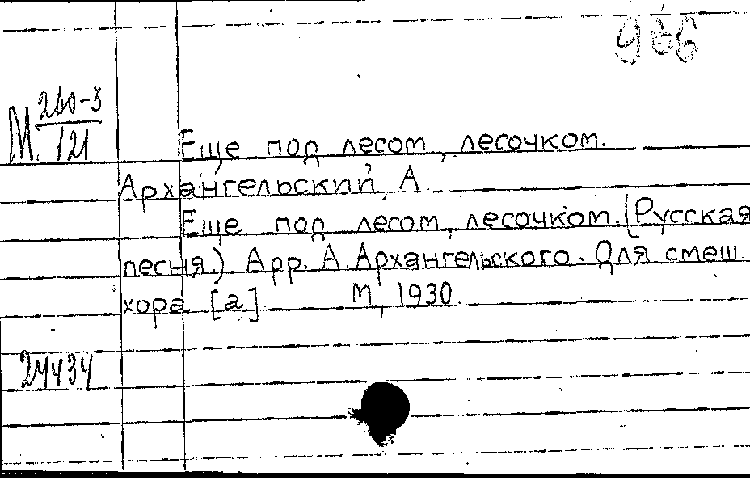 986
М. 210-3
/121
Еще под лесом, лесочком.
Архангельский, А.
Еще под лесом, лесочком. (Русская
песня.) Арр. А. Архангельского. Для смеш.
хора [a] М, 1930.
24434